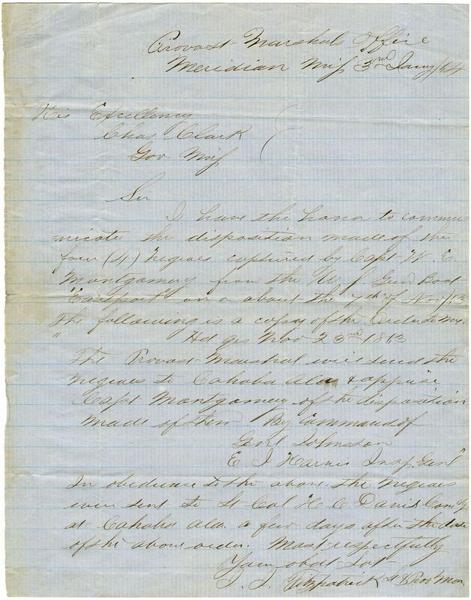 Provost Marshals Office
Meridian Miss 3rd Jany /64
His Excellency
Chas Clark
Gov Miss
Sir
I have the honor to commu
nicate the disposition made of the
four (4) Negroes captured by Capt W. E.
Montgomery from the U. S. Gun Boat
on or about the 7th of
The following is a copy of the
" Hd qrs Nov 23rd 1863
The Provost Marshal will send the
Negroes to Cahaba Ala & apprise
Capt Montgomery of the disposition
made of them By Command of
Genl Johnston
E J Harvie Insp Genl"
In obedience to the above the Negroes
were sent to Lt Col H C Davis Comdg
at Cahaba Ala a few days after the date
of the above order. Most respectfully
Your obdt Svt
J. J. Fitzpatrick